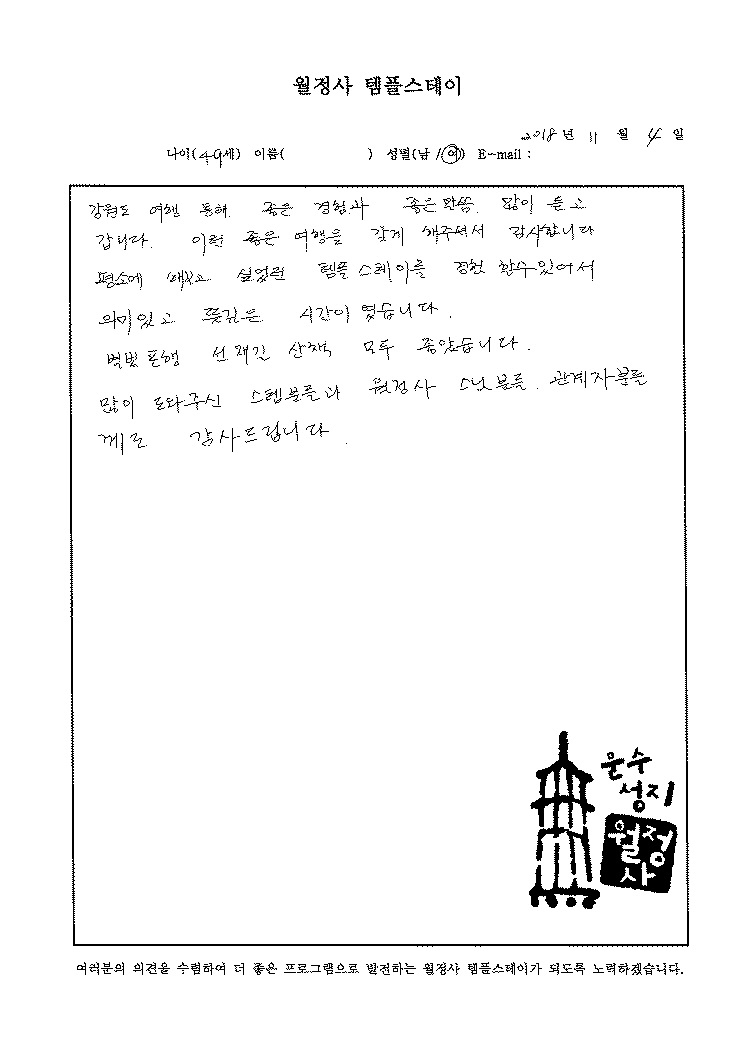 월정사 템플스테이
2018년 11월 4일
나이(49세) 이름( ) 성별(남 / 여) E-mail :
강원도 여행 통해. 좋은 경험과 좋은말씀. 많이 듣고
갑니다. 이런 좋은 여행을 갖게 해주셔서 감사합니다
평소에 해보고 싶었던 템플스테이를 경험 할수있어서
의미있고 뜻깊은 시간이 였습니다.
포행 선재길 산책 모두 좋았습니다.
많이 도와주신 스텝분들과 월정사 스님분들. 관계자분들
께로 감사드립니다.
문수
성지
월정
사
여러분의 의견을 수렴하여 더 좋은 프로그램으로 발전하는 월정사 템플스테이가 되도록 노력하겠습니다.